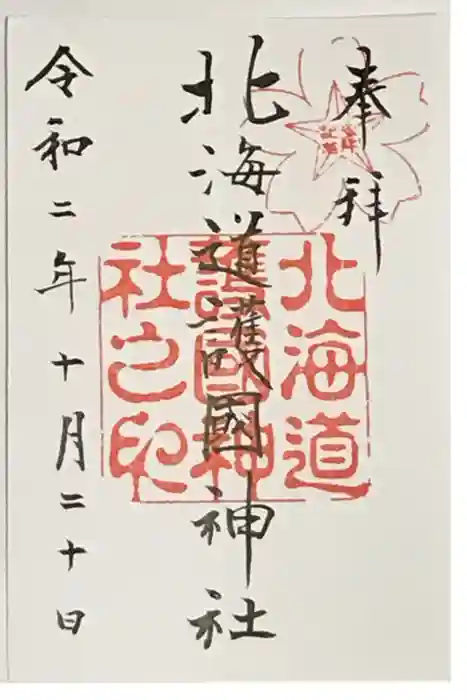 奉拝
北海道護國神社
北海道
護國神
社之印
令和二年十月二十日